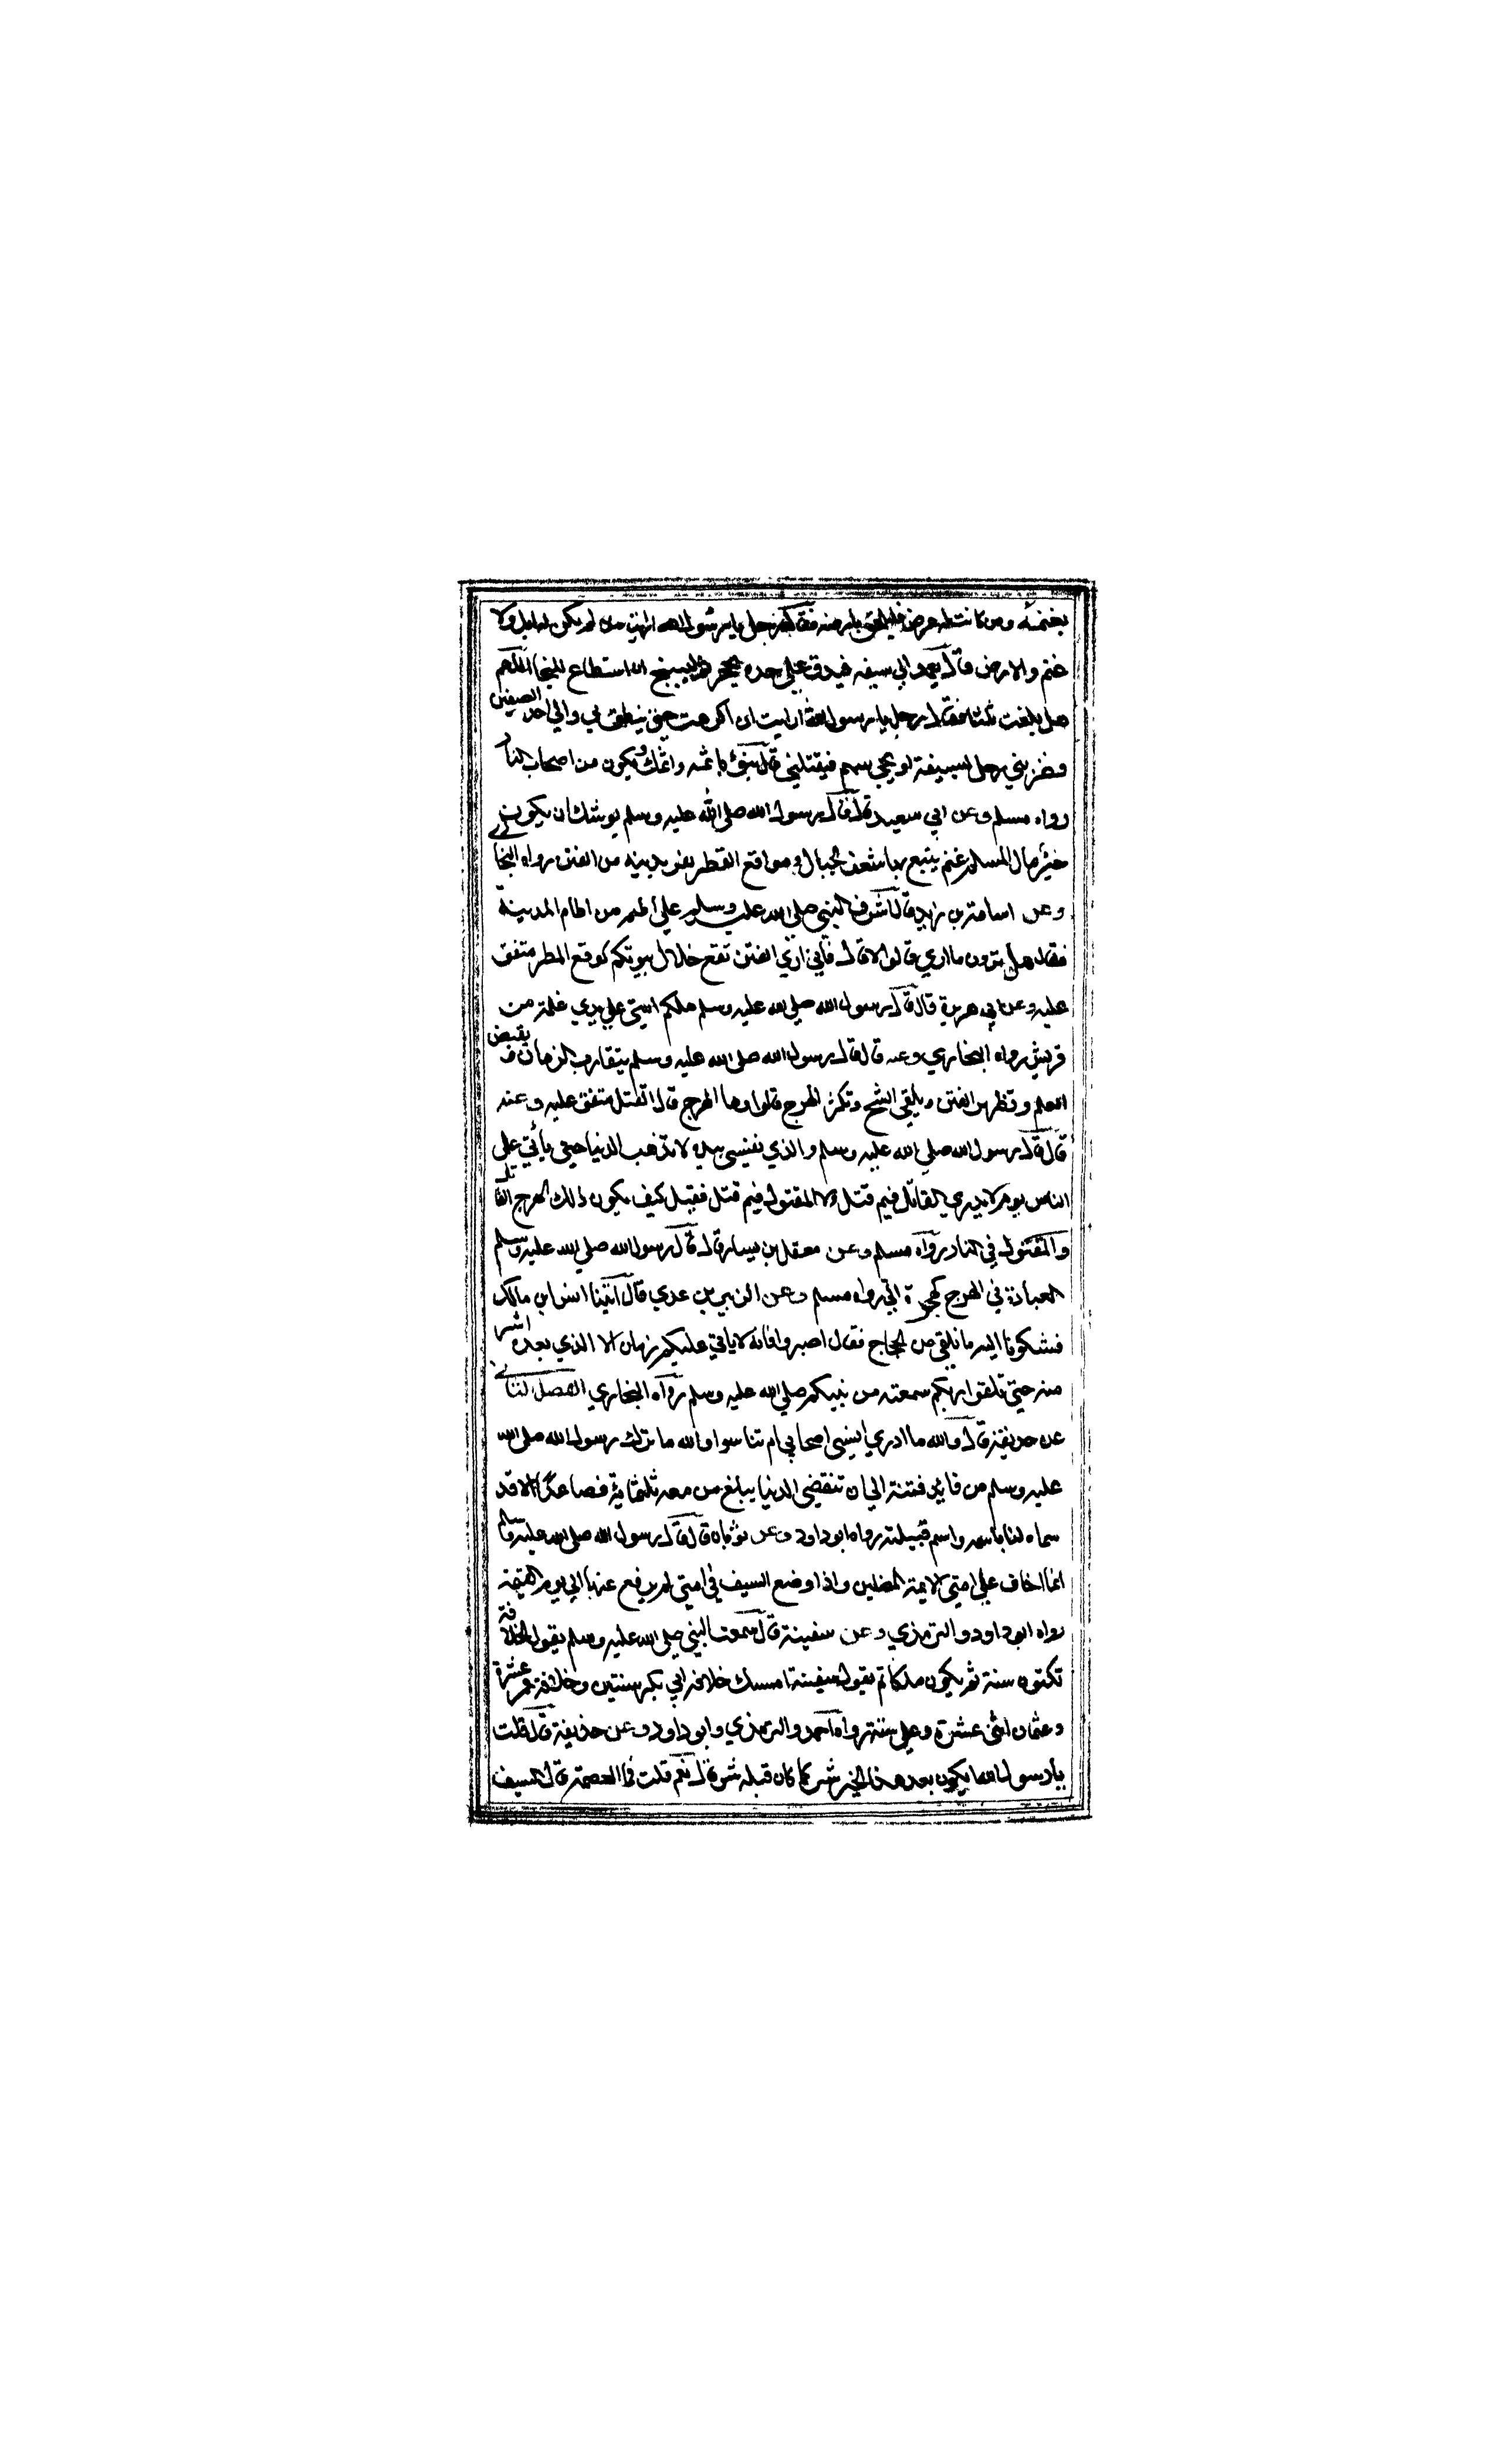 بغنمه ومن كانت له ارض فليلحق بارضه فقال رجل يا رسول الله ارايت من لم يكن له ابل ولا
غنم ولا ارض قال يعمد الي سيفه فيدق علي حده بحجر ثم لينج ان استطاع النجا اللهم
هل بلغت ثلثا فقال رجل يا رسول الله ارايت ان اكرهت حتي ينطلق بي الي احد الصفين
فضربني رجل بسيفه او يجي سهم فيقتلني قال يبوء باثمه واثمك ويكون من اصحاب النار
رواه مسلم وعن ابي سعيد قال قال رسول الله صلي الله عليه وسلم يوشك ان يكون
خير مال المسلم غنم يتبع بها شعف الجبال ومواقع القطر يفر بدينه من الفتن رواه البخاري
وعن اسامة بن زيد قال اشرف النبي صلي الله عليه وسلم علي اطم من اطام المدينة
فقال هل ترون ما اري قالوا لا قال فاني اري الفتن تقع خلال بيوتكم كوقع المطر متفق
عليه وعن ابي هريرة قال قال رسول الله صلي الله عليه وسلم هلكم امتي علي يدي غلمة من
قريش رواه البخاري وعنه قال قال رسول الله صلي الله عليه وسلم يتقارب الزمان و يقبض
العلم وتظهر الفتن ويلقي الشح وتكثر الهرج قالوا وما الهرج قال القتل متفق عليه وعنه
قال قال رسول الله صلي الله عليه وسلم والذي نفسي بيده لا تذهب الدنيا حتي يأتي علي
الناس يوم لا يدري القاتل فيم قتل ولا المقتول فيم قتل فقيل كيف يكون ذلك الهرج القاتل
والمقتول في النار رواه مسلم وعن معقل بن يسار قال قال رسول الله صلي الله عليه وسلم
العبادة في الهرج كهجرة الي رواه مسلم وعن الزبير بن عدي قال اتينا انس ابن مالك
فشكونا اليه ما نلقي من الحجاج فقال اصبروا فانه لا ياتي عليكم زمان الا الذي بعده اشر
منه حتي تلقوا ربكم سمعته من نبيكم صلي الله عليه وسلم رواه البخاري الفصل الثاني
عن حذيفة قال والله ما ادري انسي اصحابي ام تناسوا والله ما ترك رسول الله صلي الله
عليه وسلم من قائد فتنة الي ان تنقضي الدنيا يبلغ من معه ثلثمائة فصاعدا الا قد
سماه لنا باسمه واسم قبيلته رواه ابو داود وعن ثوبان قال قال رسول الله صلي الله عليه وسلم
انما اخاف علي امتي الايمة المضلين واذا وضع السيف في امتي لم يرفع عنها الي يوم القيمة
رواه ابو داود والترمذي وعن سفينة قال سمعت النبي صلي الله عليه وسلم يقول الخلافة
ثلثون سنة ثم يكون ملكا ثم يقول سفينة امسك خلافة ابي بكر سنتين وخلافة عمر عشرة
وعثمان اثني عشرة وعلي ستة رواه احمد والترمذي وابو داود وعن حذيفة قال قلت
يا رسول الله ايكون بعد هذا الخير شر كما كان قبله شر قال نعم قلت فما العصمة قال السيف